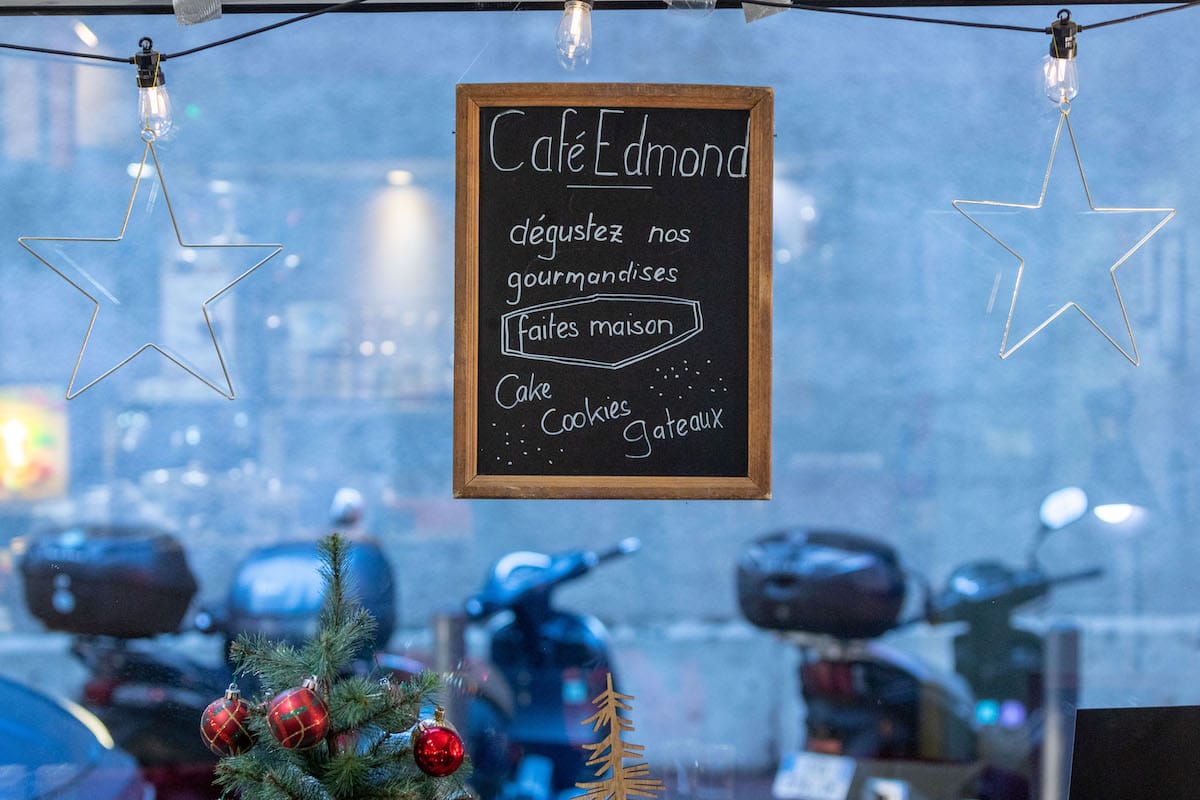 Café Edmond
dégustez nos
gourmandises
faites maison
Cake
Cookies
gateaux